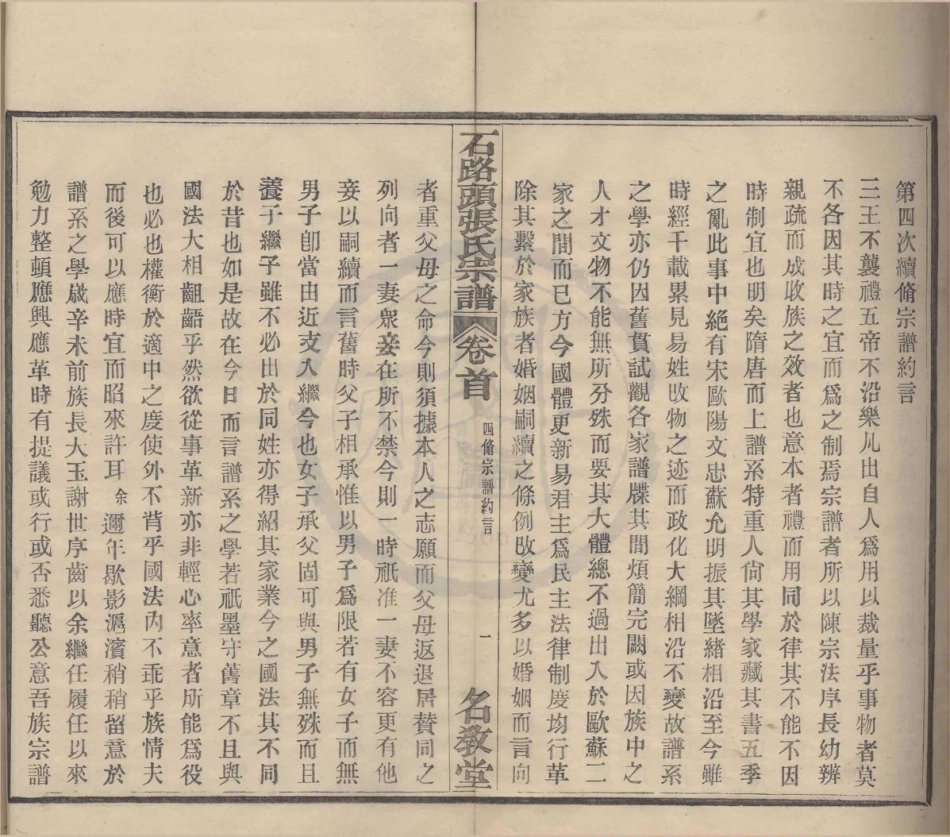 第四次續脩宗譜約言
三王不襲禮五帝不沿樂凡出自人爲用以裁量乎事物者莫
不各因其時之宜而爲之制焉宗譜者所以陳宗法序長幼辨
親疏而成收族之效者也意本者禮而用同於律其不能不因
時制宜也明矣隋唐而上譜系特重人尙其學家藏其書五季
之亂此事中絶有宋歐陽文忠蘇允明振其墜緒相沿至今雖
時經千載累見易姓攺物之迹而政化大綱相沿不變故譜系
之學亦仍因舊貫試觀各家譜牒其間煩簡完闕或因族中之
人才文物不能無所分殊而要其大體總不過出入於歐蘇二
家之間而已方今國體更新易君主爲民主法律制度均行革
除其繫於家族者婚姻嗣續之條例攺變尤多以婚姻而言向
石路頭張氏宗譜 卷首 四脩宗譜約言 一 名敎堂
者重父母之命今則須據本人之志願而父母返退居贊同之
列向者一妻衆妾在所不禁今則一時祇准一妻不容更有他
妾以嗣續而言舊時父子相承惟以男子爲限若有女子而無
男子卽當由近支入繼今也女子承父固可與男子無殊而且
養子繼子雖不必出於同姓亦得紹其家業今之國法其不同
於昔也如是故在今日而言譜系之學若祇墨守舊章不且與
國法大相齟齬乎然欲從事革新亦非輕心率意者所能爲役
也必也權衡於適中之度使外不背乎國法內不乖乎族情夫
而後可以應時宜而昭來許耳余邇年歇影滬濱稍稍留意於
譜系之學歲辛未前族長大玉謝世序齒以余繼任履任以來
勉力整頓應興應革時有提議或行或否悉聽公意吾族宗譜